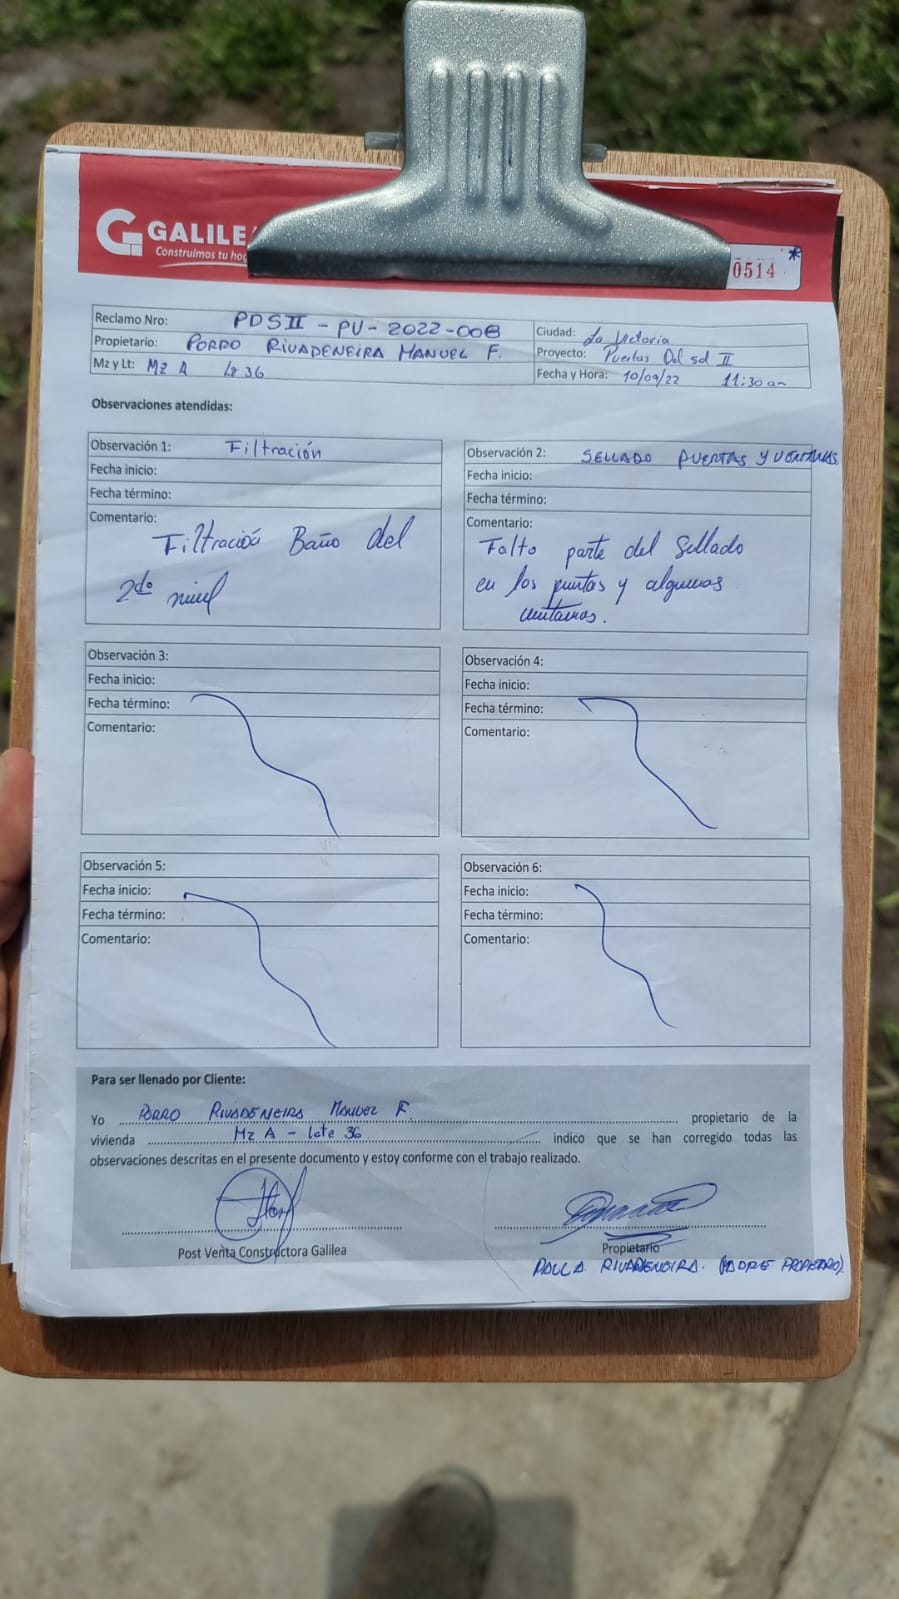 GALILE
Construimos tu hog
0514 *
Reclamo Nro: PDSII - PU - 2022-008
Ciudad: La Victoria
Propietario: PORRO RIVADENEIRA MANUEL F.
Proyecto: Puertas Del sol II
Mz y Lt: Mz A Lt 36
Fecha y Hora: 10/09/22 11:30 am
Observaciones atendidas:
Observación 1: Filtración
Fecha inicio:
Fecha término:
Comentario:
Filtración Baño del
2do nivel
Observación 2: SELLADO PUERTAS Y VENTANAS
Fecha inicio:
Fecha término:
Comentario:
Falto parte del Sellado
en los puertas y algunas
ventanas.
Observación 3:
Fecha inicio:
Fecha término:
Comentario:
Observación 4:
Fecha inicio:
Fecha término:
Comentario:
Observación 5:
Fecha inicio:
Fecha término:
Comentario:
Observación 6:
Fecha inicio:
Fecha término:
Comentario:
Para ser llenado por Cliente:
Yo PORRO RIVADENEIRA MANUEL F. propietario de la
vivienda Mz A - Lote 36 indico que se han corregido todas las
observaciones descritas en el presente documento y estoy conforme con el trabajo realizado.
Post Venta Constructora Galilea
Propietario
RIVADENEIRA. (MADRE PROPIETARIO)